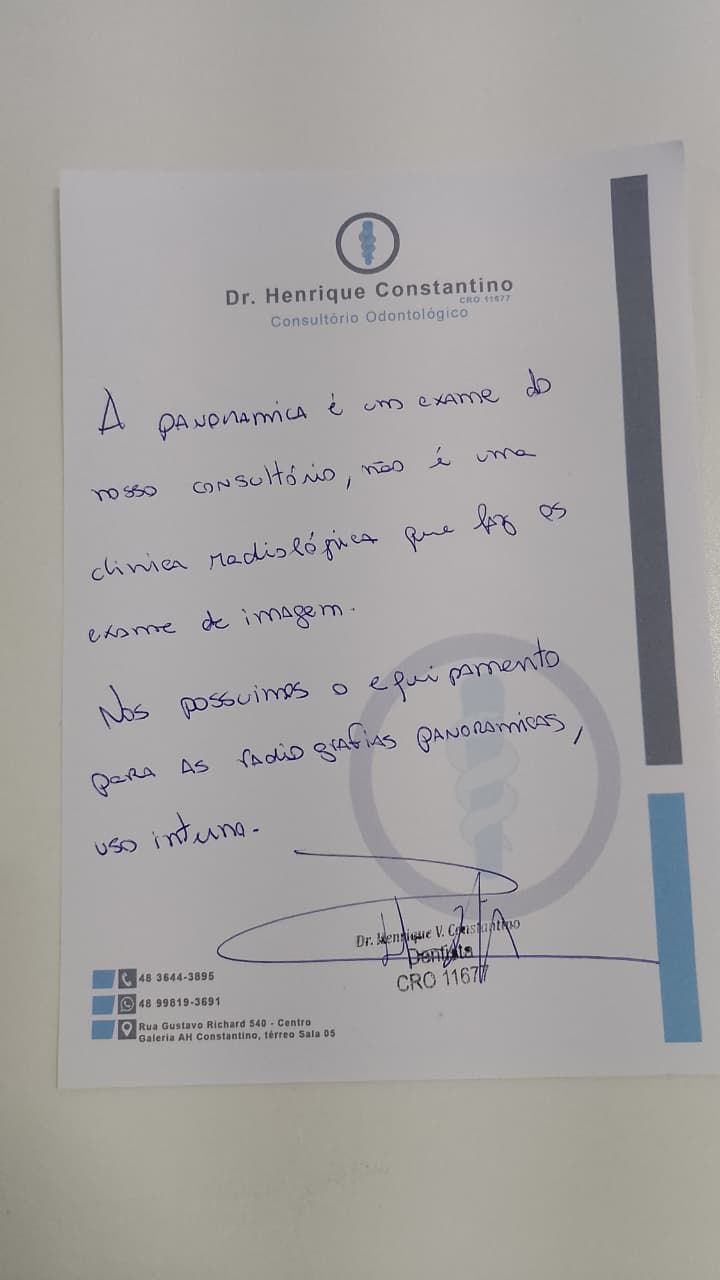 Dr. Henrique Constantino
CRO 11677
Consultório Odontológico
A PANORAMICA é um exame do
nosso consultório, não é uma
clinica radiológica que faz os
exame de imagem.
Nos possuimos o equipamento
para as radiografias PANORAMICAS,
uso interno.
Dr. Henrique V. Constantino
Dentista
CRO 11677
48 3644-3895
48 99819-3691
Rua Gustavo Richard 540 - Centro
Galeria AH Constantino, térreo Sala 05